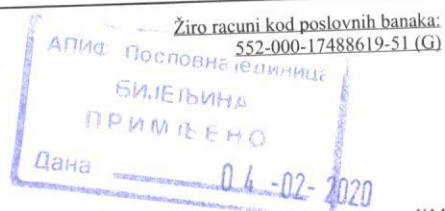 Žiro racuni kod poslovnih banaka:
552-000-17488619-51 (G)
АПИФ Пословна јединица
БИЈЕЉИНА
ПРИМЉЕНО
Дана 04-02-2020